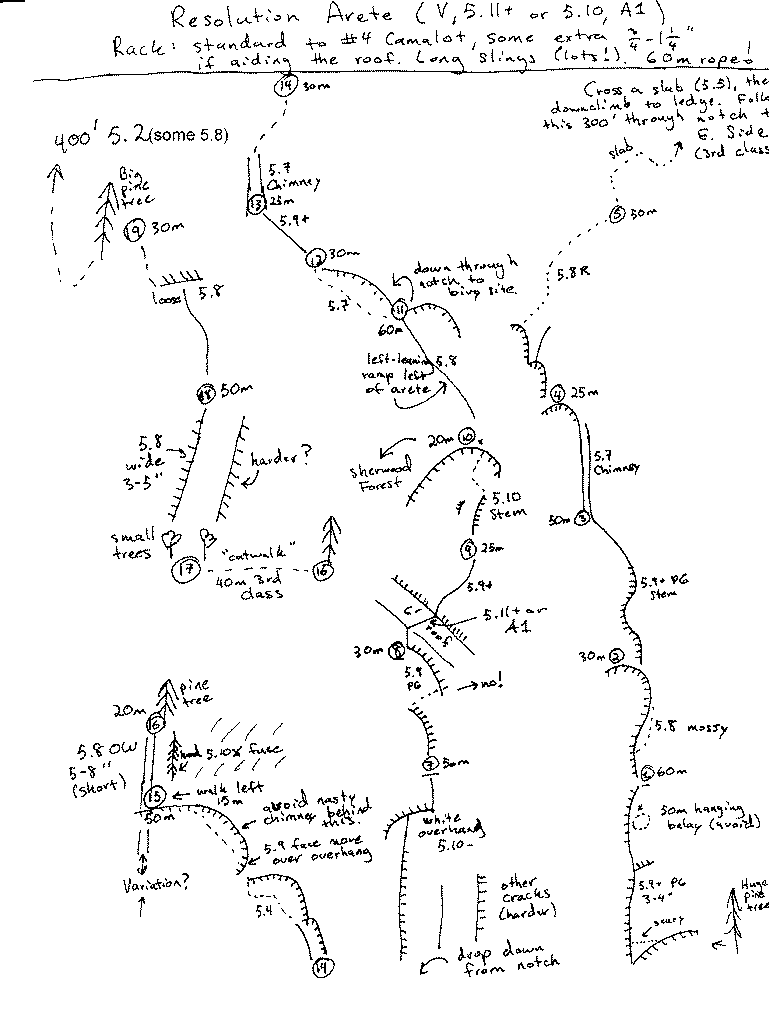 Resolution Arete (V, 5.11+ or 5.10, A1)
Rack: standard to #4 Camalot, some extra ¾-1¼"
if aiding the roof. Long slings (lots!). 60m rope!
14 30m
Cross a slab (5.5), the
downclimb to ledge. Follo
this 300' through notch t
E. Side
(3rd class
slab
400' 5.2 (some 5.8)
Big
pine
tree
19 30m
loose 5.8
5.7
Chimney
13 25m
5.9+
12 30m
5.7
down through
notch to
bivy site
11
60m
5 50m
5.8R
left-leaning 5.8
ramp left
of arete
4 25m
5.7
Chimney
50m 3
18 50m
5.8
wide
3-5"
harder?
20m 10
Sherwood
Forest
5.10
Stem
9 25m
5.9+
small
trees
17
"catwalk"
40m 3rd
class
16
6'
roof
5.11+ or
A1
30m 8
5.9
PG
no!
5.9+ PG
Stem
30m 2
5.8 mossy
1 60m
7 50m
white
overhang
5.10-
50m hanging
belay (avoid)
5.9+ PG
3-4"
scary
Huge
pine
tree
pine
tree
20m
16
5.8 OW
5-8"
(short)
5.10x fuse
15
walk left
15m
50m
avoid nasty
chimney behind
this.
5.9 face move
over overhang
Variation?
5.4
14
other
cracks
(harder)
drop down
from notch